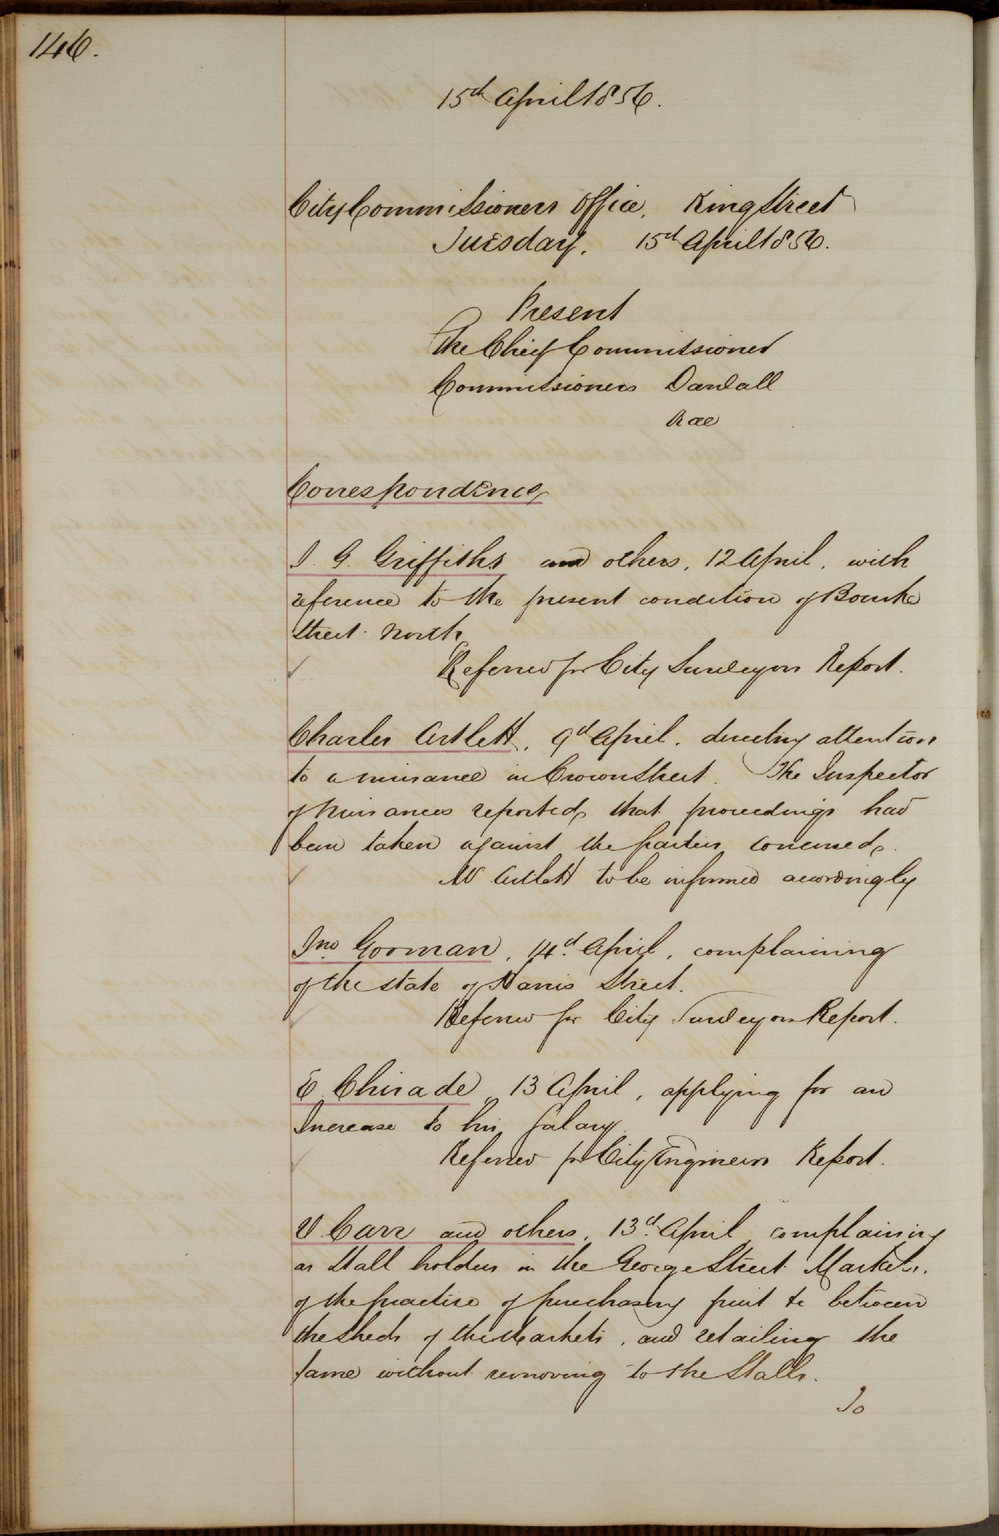 146.
15th April 1856.
City Commissioners Office, King Street
Tuesday, 15th April 1856.
Present
The Chief Commissioner
Commissioners Darvall
Rae
Correspondence
J. G. Griffiths and others, 12 April, with
reference to the present condition of Bourke
Street North
Referred for City Surveyors Report.
Charles Artlett, 9th April, directing attention
to a nuisance in Crown Street. The Inspector
of Nuisances reported, that proceedings had
been taken against the parties concerned.
Mr Artlett to be informed accordingly
Jno. Gorman, 14th April, complaining
of the state of Harris Street.
Referred for City Surveyors Report.
E. Chirade, 13 April, applying for an
Increase to his Salary
Referred for City Engineers Report.
Carr and others, 13th April, complaining
as Stall holders in the George Street Markets,
of the practise of purchasing fruit &c between
the Sheds of the Markets, and retailing the
same without removing to the Stalls.
To